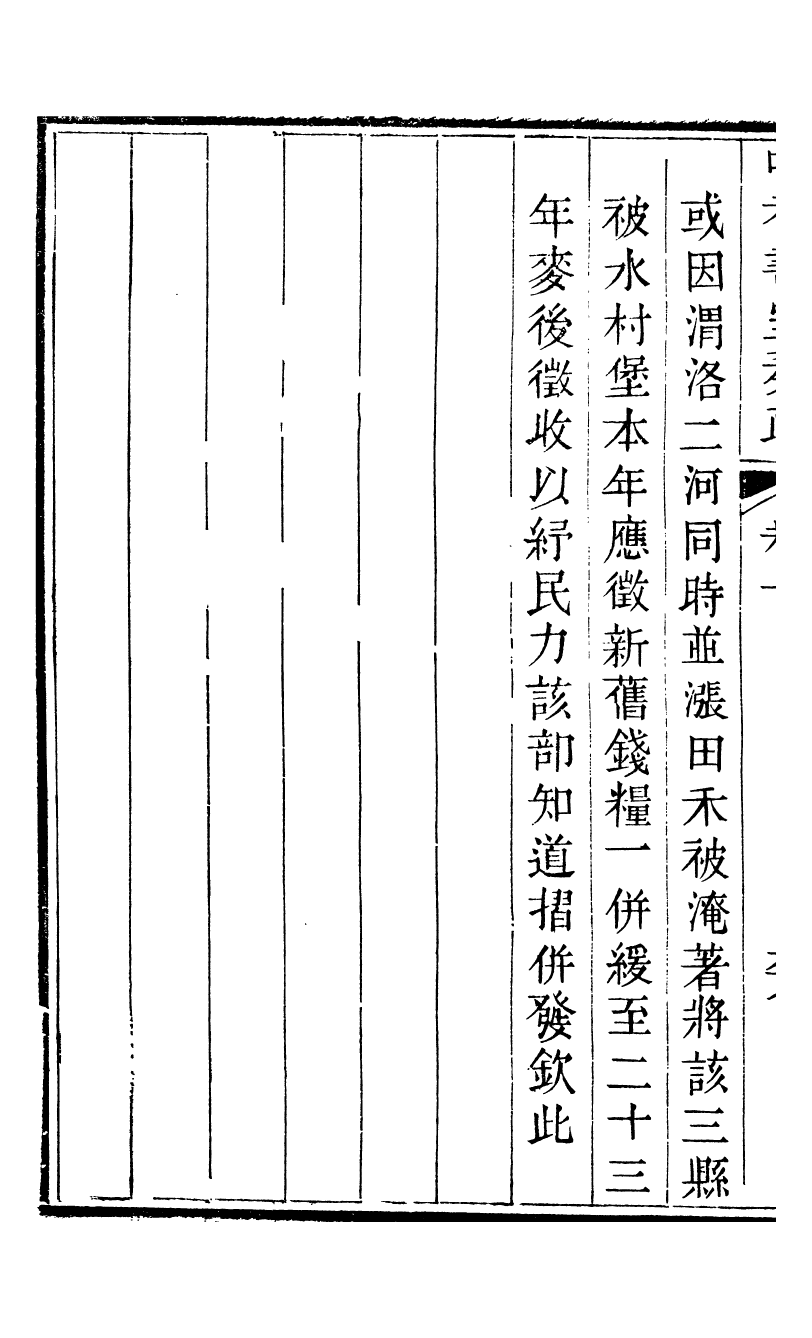 或因渭洛二河同時並漲田禾被淹著將該三縣
被水村堡本年應徵新舊錢糧一併緩至二十三
年麥後徵收以紓民力該部知道摺併發欽此